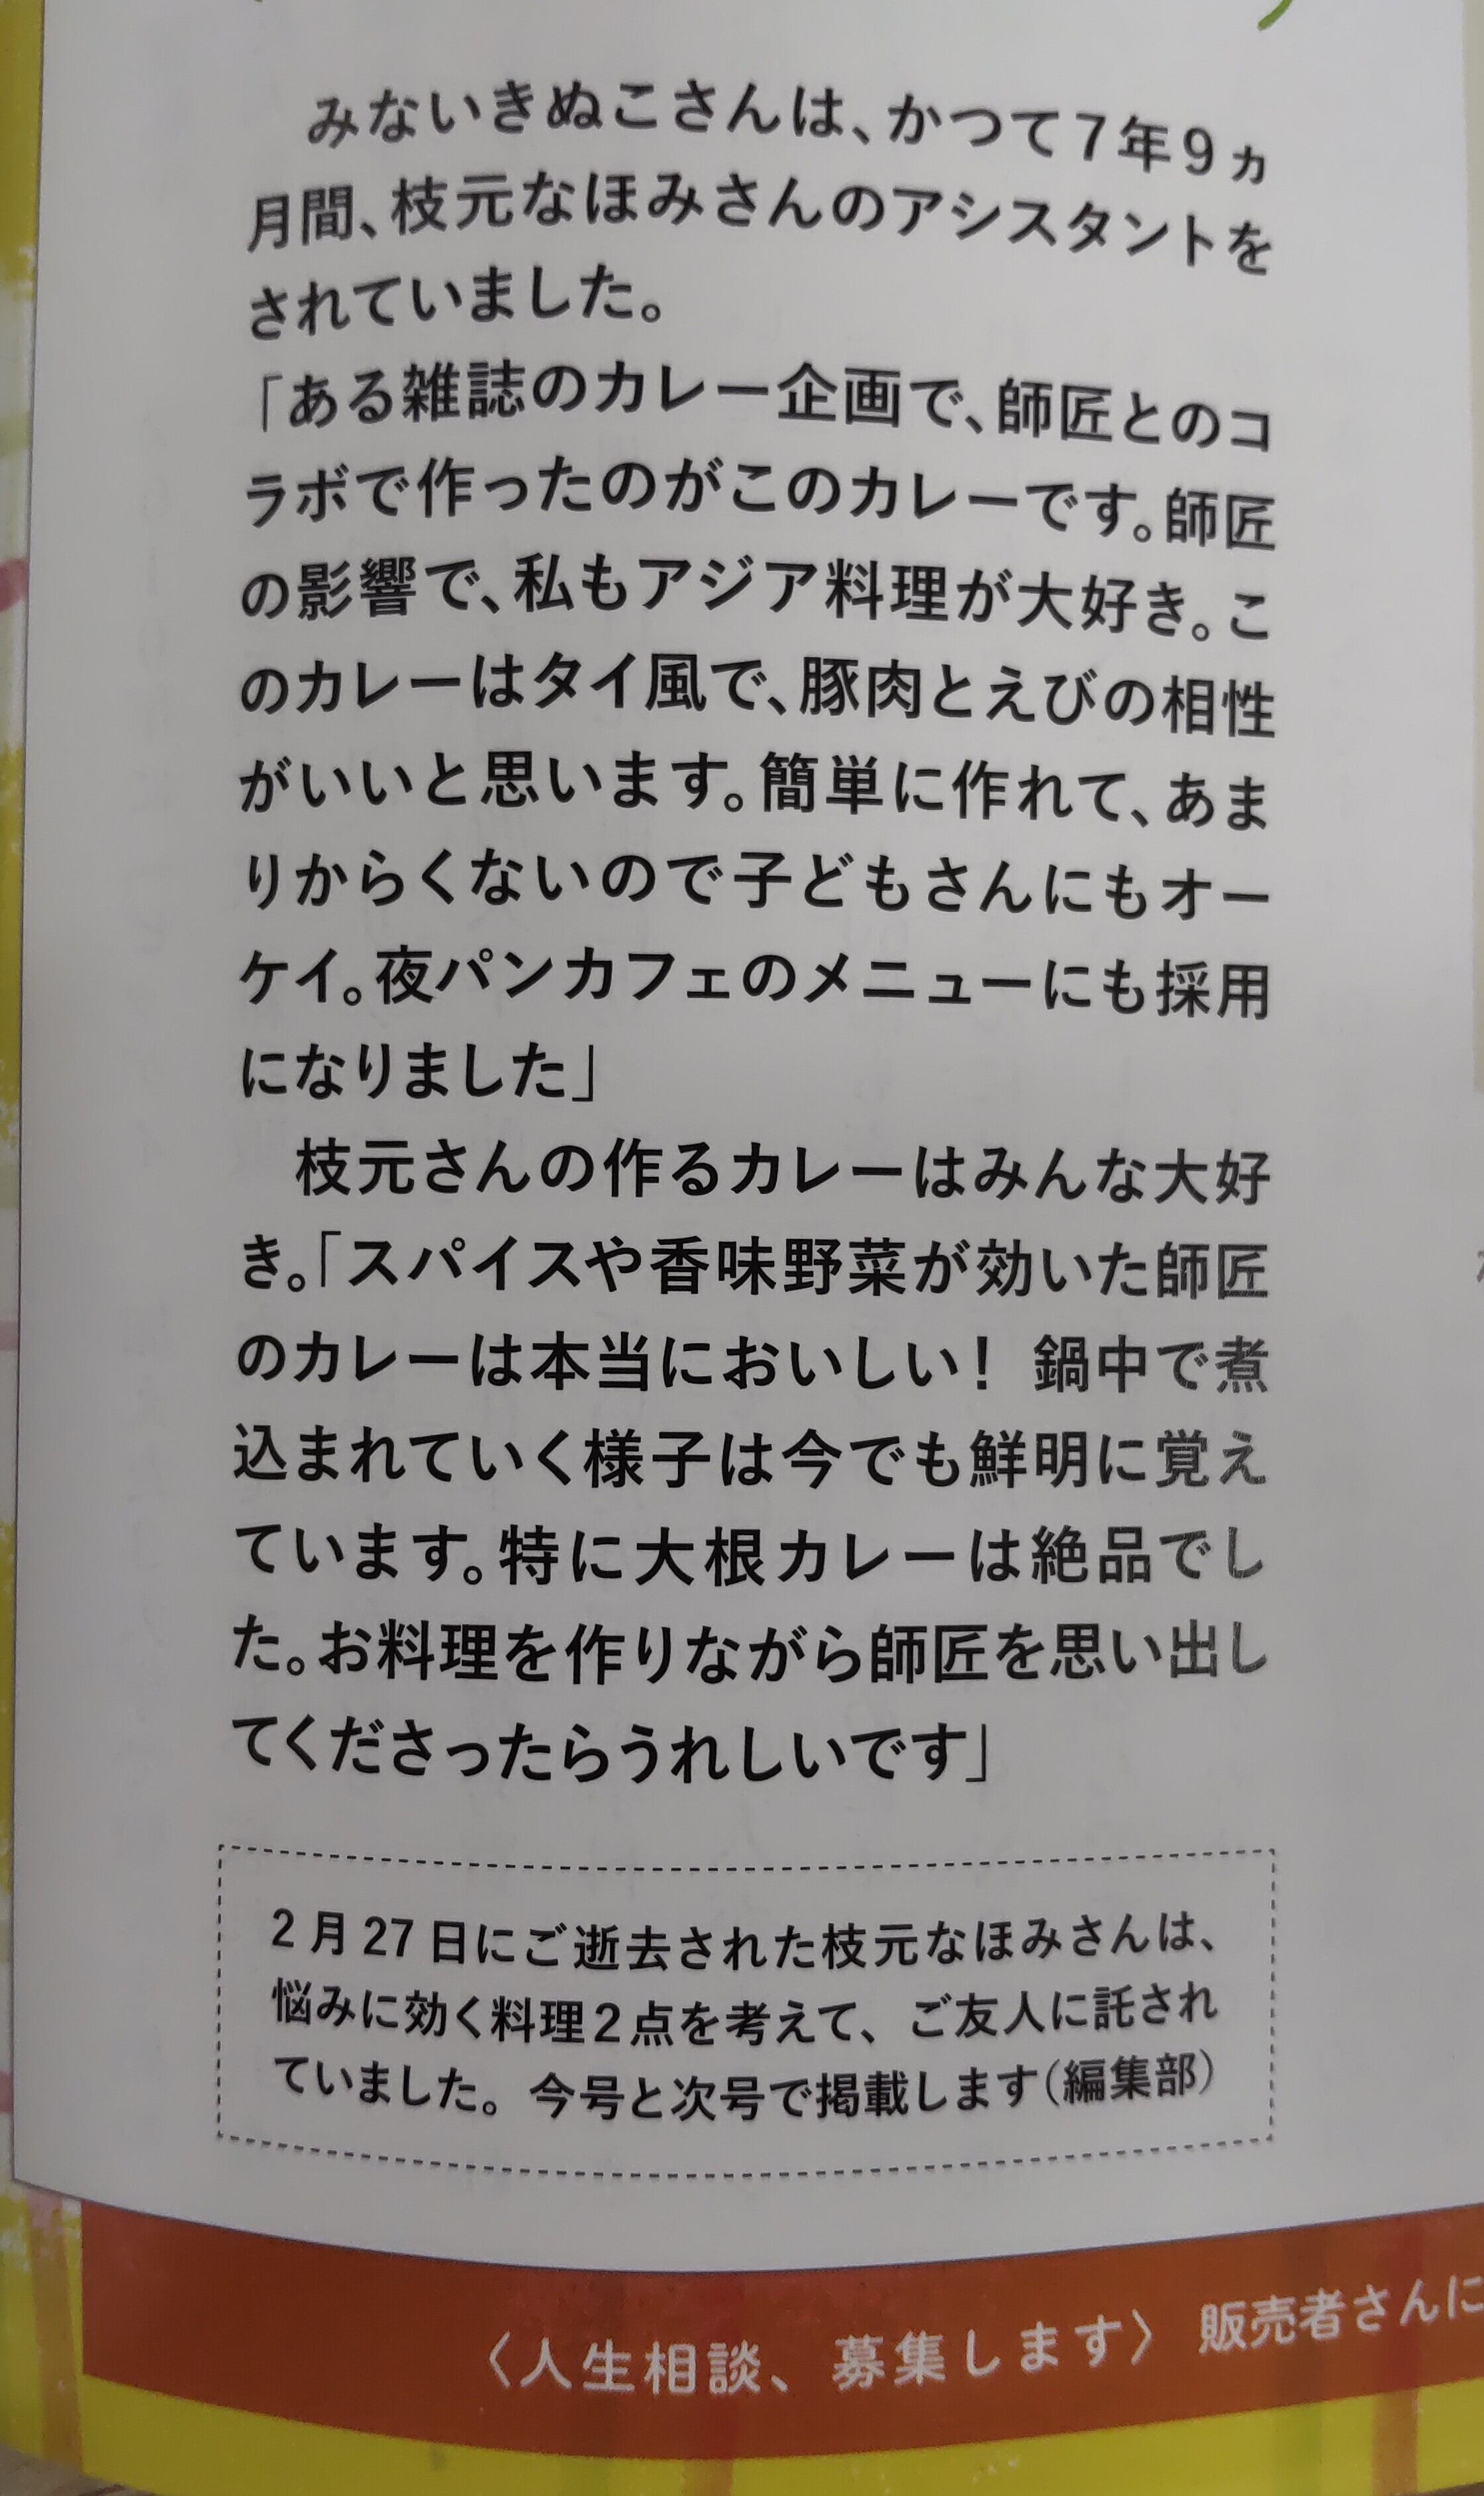 みないきぬこさんは、かつて7年9ヵ
月間、枝元なほみさんのアシスタントを
されていました。
「ある雑誌のカレー企画で、師匠とのコ
ラボで作ったのがこのカレーです。師匠
の影響で、私もアジア料理が大好き。こ
のカレーはタイ風で、豚肉とえびの相性
がいいと思います。簡単に作れて、あま
りからくないので子どもさんにもオー
ケイ。夜パンカフェのメニューにも採用
になりました」
枝元さんの作るカレーはみんな大好
き。「スパイスや香味野菜が効いた師匠
のカレーは本当においしい！ 鍋中で煮
込まれていく様子は今でも鮮明に覚え
ています。特に大根カレーは絶品でし
た。お料理を作りながら師匠を思い出し
てくださったらうれしいです」
2月27日にご逝去された枝元なほみさんは、
悩みに効く料理2点を考えて、ご友人に託され
ていました。今号と次号で掲載します（編集部）
〈人生相談、募集します〉 販売者さんに